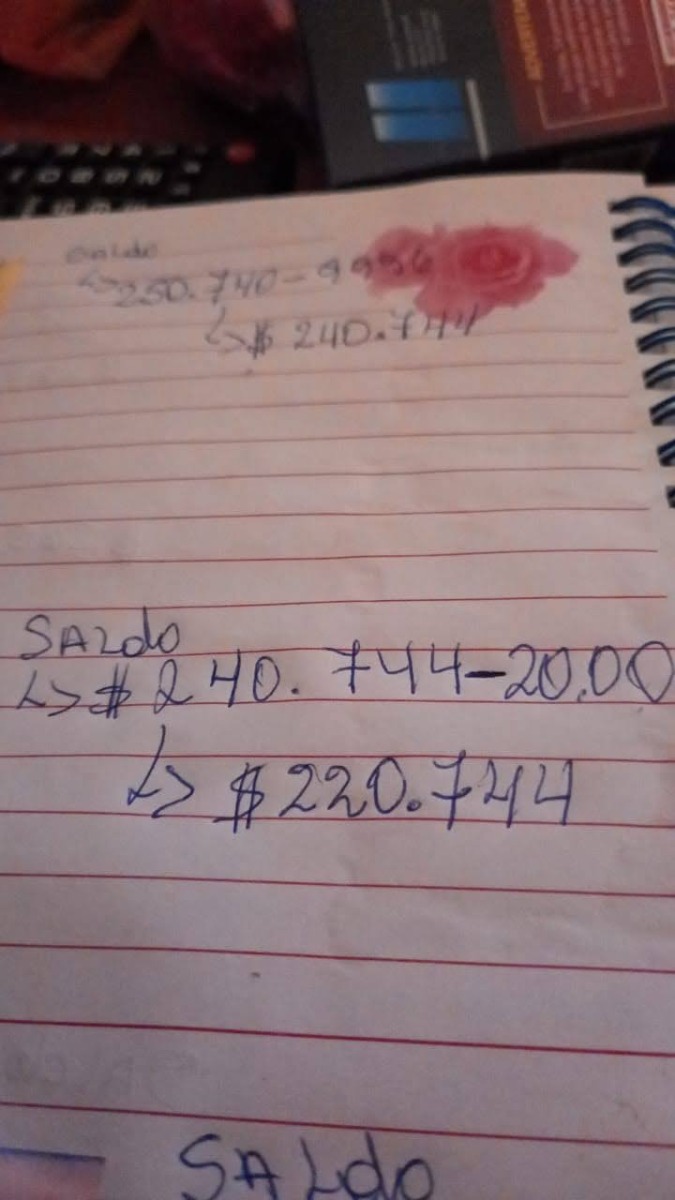 Saldo
↳250.740-9996
↳$ 240.744
SALdo
↳$240.744-20.00
↳ $220.744
SALdo